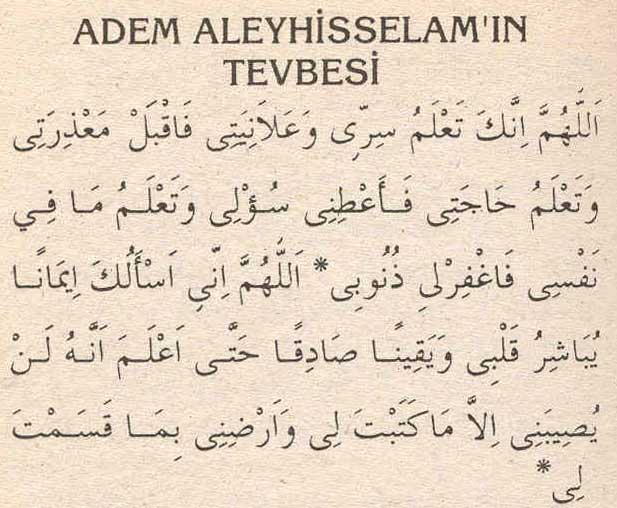 ADEM ALEYHİSSELAM'IN
TEVBESİ
اَللّٰهُمَّ اِنَّكَ تَعْلَمُ سِرِّى وَعَلَانِيَتِى فَاقْبَلْ مَعْذِرَتِى
وَتَعْلَمُ حَاجَتِى فَأَعْطِنِى سُؤْلِى وَتَعْلَمُ مَا فِي
نَفْسِى فَاغْفِرْلِى ذُنُوبِى* اَللّٰهُمَّ اِنِّي اَسْأَلُكَ اِيمَانًا
يُبَاشِرُ قَلْبِى وَيَقِينًا صَادِقًا حَتَّى اَعْلَمَ اَنَّهُ لَنْ
يُصِيبَنِى اِلاَّ مَاكَتَبْتَ لِى وَاَرْضِنِى بِمَا قَسَمْتَ
لِى*